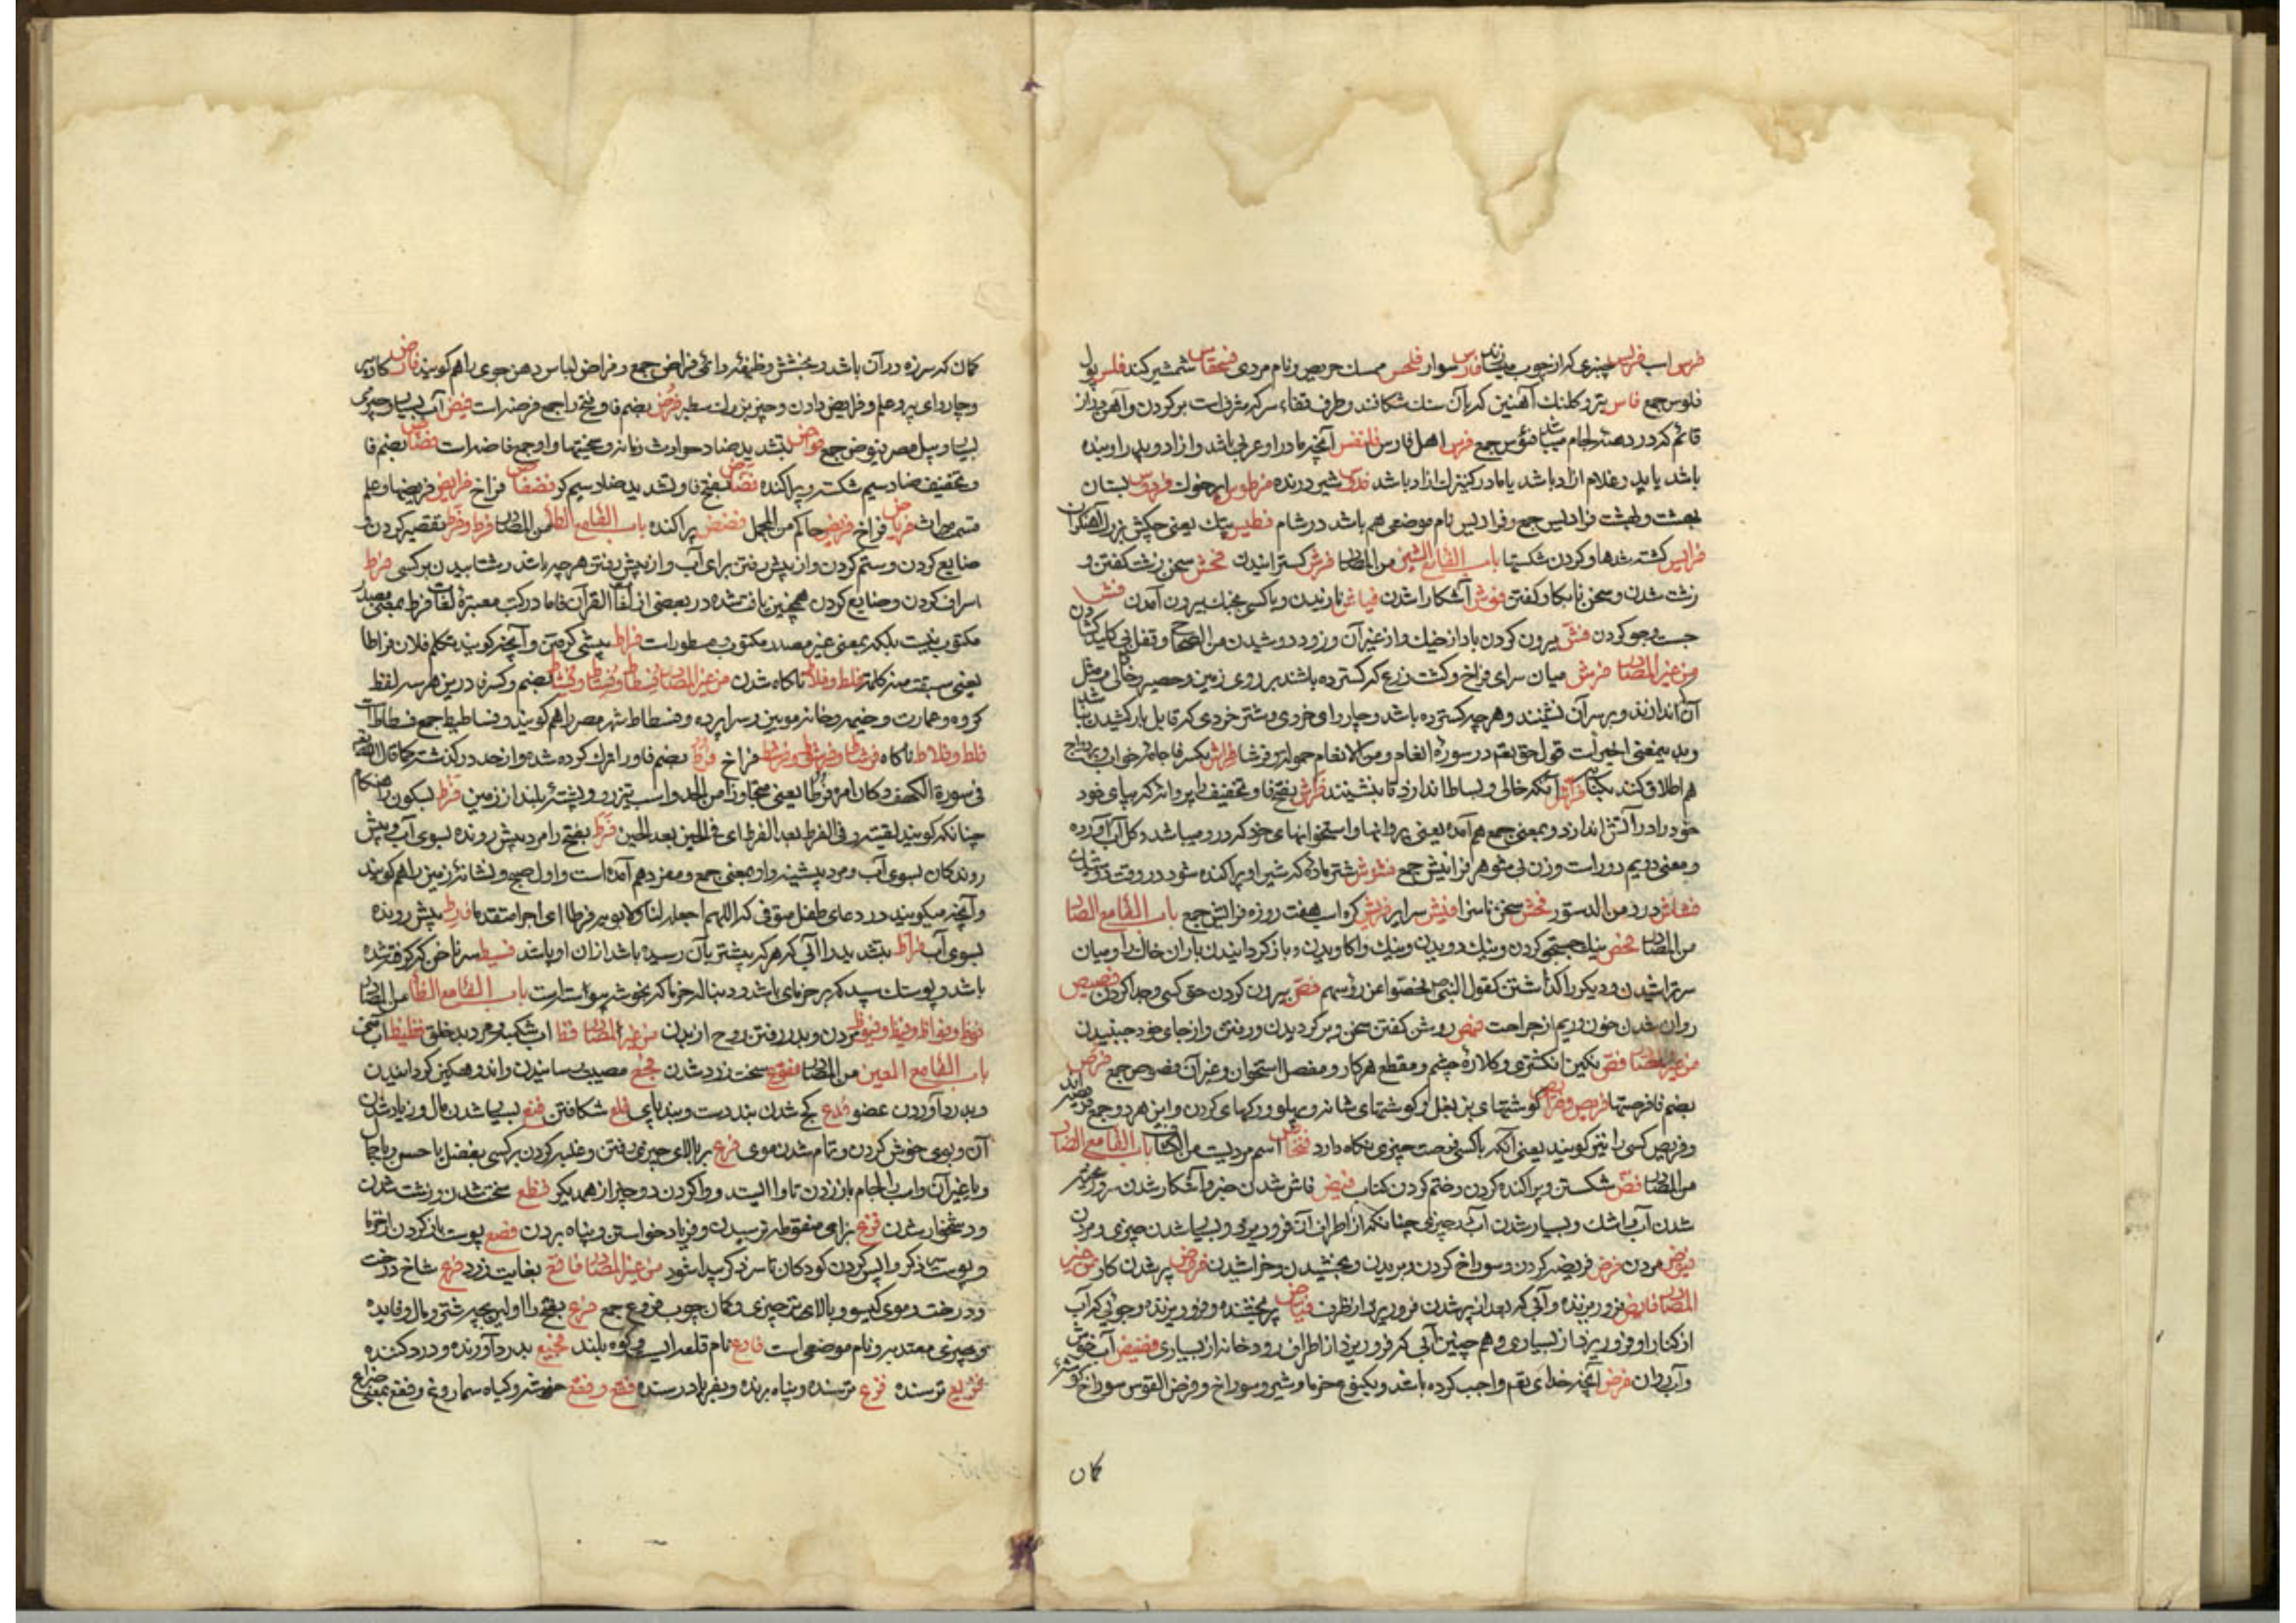 فرس اسب فریس چنبری که از چوب میسازند فارس سوار فلحس ممسك حریص و نام مردی فنجقاس شمشیر کند فلس پول
فلوس جمع فاس تبر و کلنك آهنین که بآن سنك شکافند و طرف قفاء سر که مشرف است بر کردن و آهن دراز
قائم که در دهنه لجام میباشد فؤس جمع فرس اهل فارس فلنقس آنچه مادر او عربی باشد و از او و پدر او بنده
باشد یا پدر و غلام ازاد باشد یا مادر کنیزك ازاد باشد شیر درنده فردوس بستان
بهشت و بهشت فرادیس جمع و فرادیس نام موضعی هم باشد در شام فطیس پتك یعنی چکش بزرك آهنکران
فرایس کشته شدها و کردن شکستها باب الفا مع الشین من المصادر فرش کسترانیدن فحش سخن زشت کفتن و
زشت شدن و سخن نابکار کفتن فشوش آشکارا شدن نازیدن و با کسی بجنك بیرون آمدن
جست و جو کردن فش بیرون کردن باد از خیك و از غیر آن و زود دوشیدن من الصحاح و قفل بی کلید کشادن
من غیر المصادر فرش میان سرای فراخ و کشت زرع که کسترده باشند بر روی زمین و حصیر و خالی و مثل
آن که اندازند و بر سر آن نشینند و هر چه کسترده باشد و چاروای خردی و شتر خردی که قابل بار کشیدن نباشد
و بدین معنی اخیر است قول حق تعم در سوره انعام ومن الانعام حمولة وفرشا فراش بکسر فا جامه خواب و بر زوج
هم اطلاق کنند بکنایه آنکه خالی و بساط اندازد تا بنشینند فراش بفتح فا و تخفیف را پروانه که بپای خود
خود را در آتش اندازد و بمعنی جمع هم آمده یعنی پروانها و استخوانهای خرد که در رو میباشد و کل آب آورده
و بمعنی دویم و زن بی شوهر فرایش جمع فشوش شتر ماده که شیر او پراکنده شود در وقت دوشیدن
من الدستور فحش سخن ناسزا سرایر فریش کره اسب هفت روزه فرایش جمع باب الفا مع الصاد
من المصادر فحص نیك جستجو کردن و نیك دویدن و نیك واکاویدن و باز کردانیدن باران خاك را و میان
سر تراشیدن و دیکر را کذاشتن کقول النبی فحصوا عن رؤسهم فص بیرون کردن حق کسی و جدا کردن فصیص
روان شدن خون و ریم از جراحت روشن کفتن سخن و بر کردیدن و رفتن و از جای خود جنبیدن
من غیر المصادر فص نکین انکشتری و کلاره چشم و مقطع هر کار و مفصل استخوان و غیر آن فصوص جمع فرص
بضم فا فرصتها فریص و فرایص کوشتهای بن بغل و کوشتهای شانه و پهلو و رکهای کردن و این هر دو جمع فریصه اند
و فریص کسی را نیز کویند یعنی آنکه با کسی نوبت چیزی نکاه دارد اسم مردیست من الکتاب باب الفا مع الضاد
من المصادر فض شکستن و پراکنده کردن و ختم کردن کتاب فیض فاش شدن خبر و آشکار شدن سر و غیره
شدن آب با اشك و بسیار شدن آب و چیزی چنانکه از اطراف آن فرو ریزد و بسیار شدن چیزی و مردن
فیوض مردن فرض فریضه کردن و سوراخ کردن و بریدن و بخشیدن و خراشیدن فروض پیر شدن کاو من غیر
المصادر فایض فرو ریزنده و آبی که بعد از پر شدن فرو ریزد از ظرف فیاض پر بخشنده و فرو ریزنده و جوئی که آب
از کنار او فرو ریزد از بسیاری و هم چنین آبی که فرو ریزد از اطراف رودخانه از بسیاری فضیض آب خوش
و آب روان فرض آنچه خدای تعم واجب کرده باشد و یکنوع خرما و شیر و سوراخ و فرض القوس سوراخ کوشه
کمان
کمان که سر زه در آن باشد و بخشش وظیفه و دائمی فراض جمع و فراض لباس و دهن جوی را هم کویند فارض کاو پیر
و چاروای پیر و علم فرایض دادن و چیز بزرك سطبر فرض بضم فا و فتح را جمع فرضه است فیض آب بسیار و چیزی
بسیار و نیل مصر فیوض جمع فواض بتشدید ضاد حوادث زمانه و سختیها و او جمع فاضه است فضاض بضم فا
و تخفیف ضاد سیم شکسته و پراکنده فضاض بفتح فا و تشدید ضاد سیم کو فضفاض فراخ فرایض فریضها و علم
قسمت میراث فریاض فراخ فریض حاکم من المجمل فضض پراکنده باب الفا مع الطا من المصادر فرط و فرط تقصیر کردن و
ضایع کردن و ستم کردن و از پیش رفتن برای آب و از پیش رفتن هر چه باشد و شتابیدن بر کسی فرط
اسراف کردن و ضایع کردن همچنین یافت شده در بعضی از لغات القرآن فاما در کتب معتبره لغات فرط بمعنی مصدر
مکتوب نیست بلکه بمعنی غیر مصدر مکتوب و مسطور است فراط پیشی کرفتن و آنچه کویند تکلم فلان فراطا
یعنی سبقت منه کلمة فلط و فلاط ناکاه شدن من غیر المصادر بضم و کسر فا درین هر سه لفظ
کروه و عمارت و خیمه و خانه مویین و سراپرده و فسطاط شهر مصر را هم کویند و فساطیط جمع فسطاط است
فلط و فلاط ناکاه فراخ فرط بضم فا و را ترك کرده شده و از حد درکذشته کما قال الله تعم
فی سورة الکهف وکان امره فرطا یعنی متجاوزا من الحد و اسب تیز رو و پشته بلند از زمین فرط بسکون را هنکام
چنانکه کویند لقیته فی الفرط بعد الفرط ای فی الحین بعد الحین فرط بفتح را مرد پیش رونده بسوی آب و پیش
روندکان بسوی آب و مرد پیشینه و او بمعنی جمع و مفرد هم آمده است و اول صبح و نشانه زمین را هم کویند
و آنچه میکویند در دعای طفل متوفی که اللهم اجعله لنا ولابویه فرطا ای اجرا متقدما فارط پیش رونده
بسوی آب فراط بتشدید را آبی که هر که پیشتر بآن رسیده باشد از آن او باشد فسیط سر ناخن که کرفته شده
باشد و پوستك سپید که بر خرمای باشد و دنباله خرما که بخوشه پیوسته است باب الفا مع الظا من المصادر
مردن و بدر رفتن روح از بدن من غیر المصادر فظ آب شکنبه و مرد بدخلق فظیظ آب منی
باب الفا مع العین من المصادر فقوع سخت زرد شدن فجع مصیبت رسانیدن و اندوهکین کردانیدن
و بدرد آوردن عضو فدع کج شدن بند دست و بند پای فلع شکافتن فنع بسیار شدن مال و زیاد شدن
آن و بوی خوش کردن و تمام شدن موی فرع بر بالای چیزی رفتن و غلبه کردن بر کسی بفضل یا حسن یا جمال
و یا غیر آن و اسب را لجام باز زدن تا وا ایستد و وا کردن دو چیز از همدیکر فظع سخت شدن و زشت شدن
و دشخوار شدن فزع ترسیدن و فریاد خواستن و پناه بردن فصع پوست باز کردن از خرما
و پوست ذکر واپس کردن کودکان تا سر ذکر پیدا شود من غیر المصادر فاقع بغایت زرد فرع شاخ درخت
و درخت و موی کیسو و بالای هر چیزی و کمان چوب فروع جمع فرع بفتح را اولین بچه شتر و مال و فایده
و چیزی معتد به و نام موضعی است فارع نام قلعه ایست و کوه بلند فجیع بدرد آورنده و درد کننده
فزیع ترسنده فزع ترسنده و پناه برنده و بفریاد رسنده فقع و فقع خوشه و کیاه سماروغ و فقع بمعنی